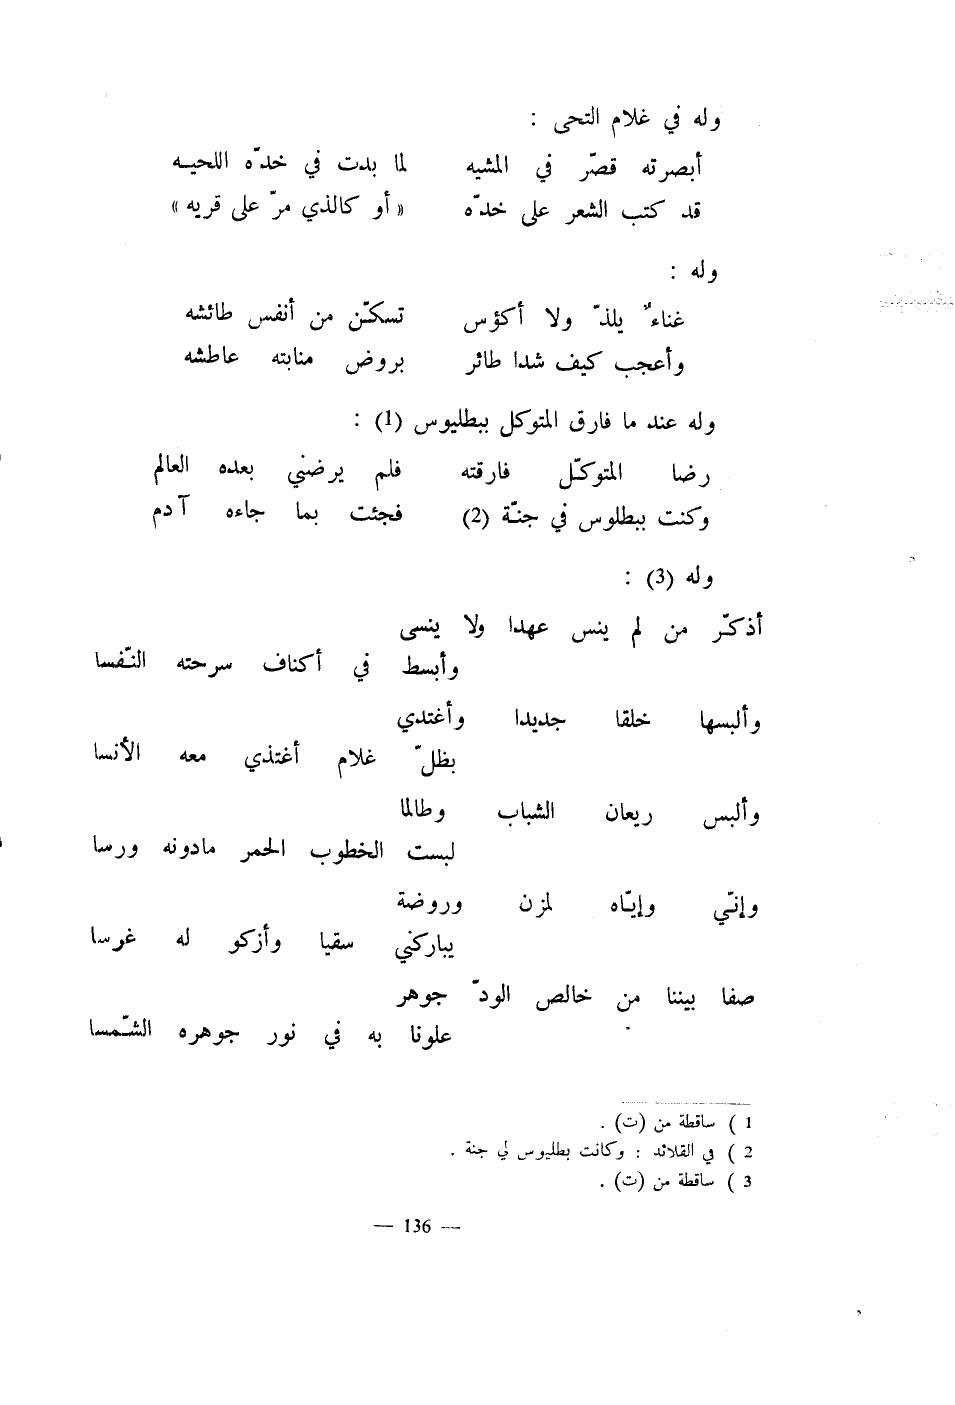 وله في غلام التحى :
أبصرته قصّر في المشيه لما بدت في خدّه اللحيه
قد كتب الشعر على خدّه « أو كالذي مرّ على قريه »
وله :
غناءٌ يلذّ ولا أكؤس تسكّن من أنفس طائشه
وأعجب كيف شدا طائر بروض منابته عاطشه
وله عند ما فارق المتوكل ببطليوس (1) :
رضا المتوكّل فارقته فلم يرضني بعده العالم
وكنت ببطلوس في جنّة (2) فجئت بما جاءه آدم
وله (3) :
أذكّر من لم ينس عهدا ولا ينسى
وأبسط في أكناف سرحته النّفسا
وألبسها خلقا جديدا وأغتدي
بظلّ غلام أغتذي معه الأنسا
وألبس ريعان الشباب وطالما
لبست الخطوب الحمر مادونه ورسا
وإنّي وإيّاه لمزن وروضة
يباركني سقيا وأزكو له غرسا
صفا بيننا من خالص الودّ جوهر
علونا به في نور جوهره الشّمسا
1 ) ساقطة من (ت) .
2 ) في القلائد : وكانت بطليوس لي جنة .
3 ) ساقطة من (ت) .
— 136 —